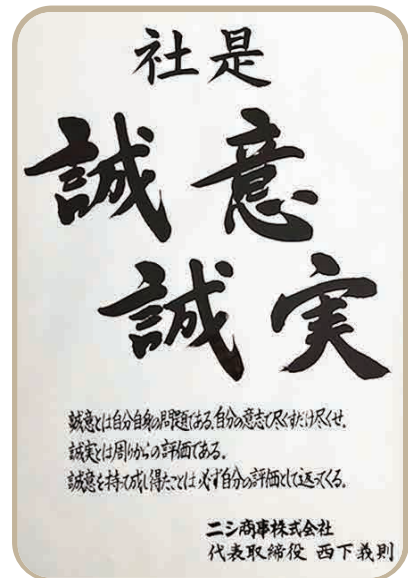 社是
誠意
誠実
誠意とは自分自身の問題である。自分の意志で尽くすだけ尽くせ。
誠実とは周りからの評価である。
誠意を持って成し得たことは必ず自分の評価として返ってくる。
ニシ商事株式会社
代表取締役 西下義則